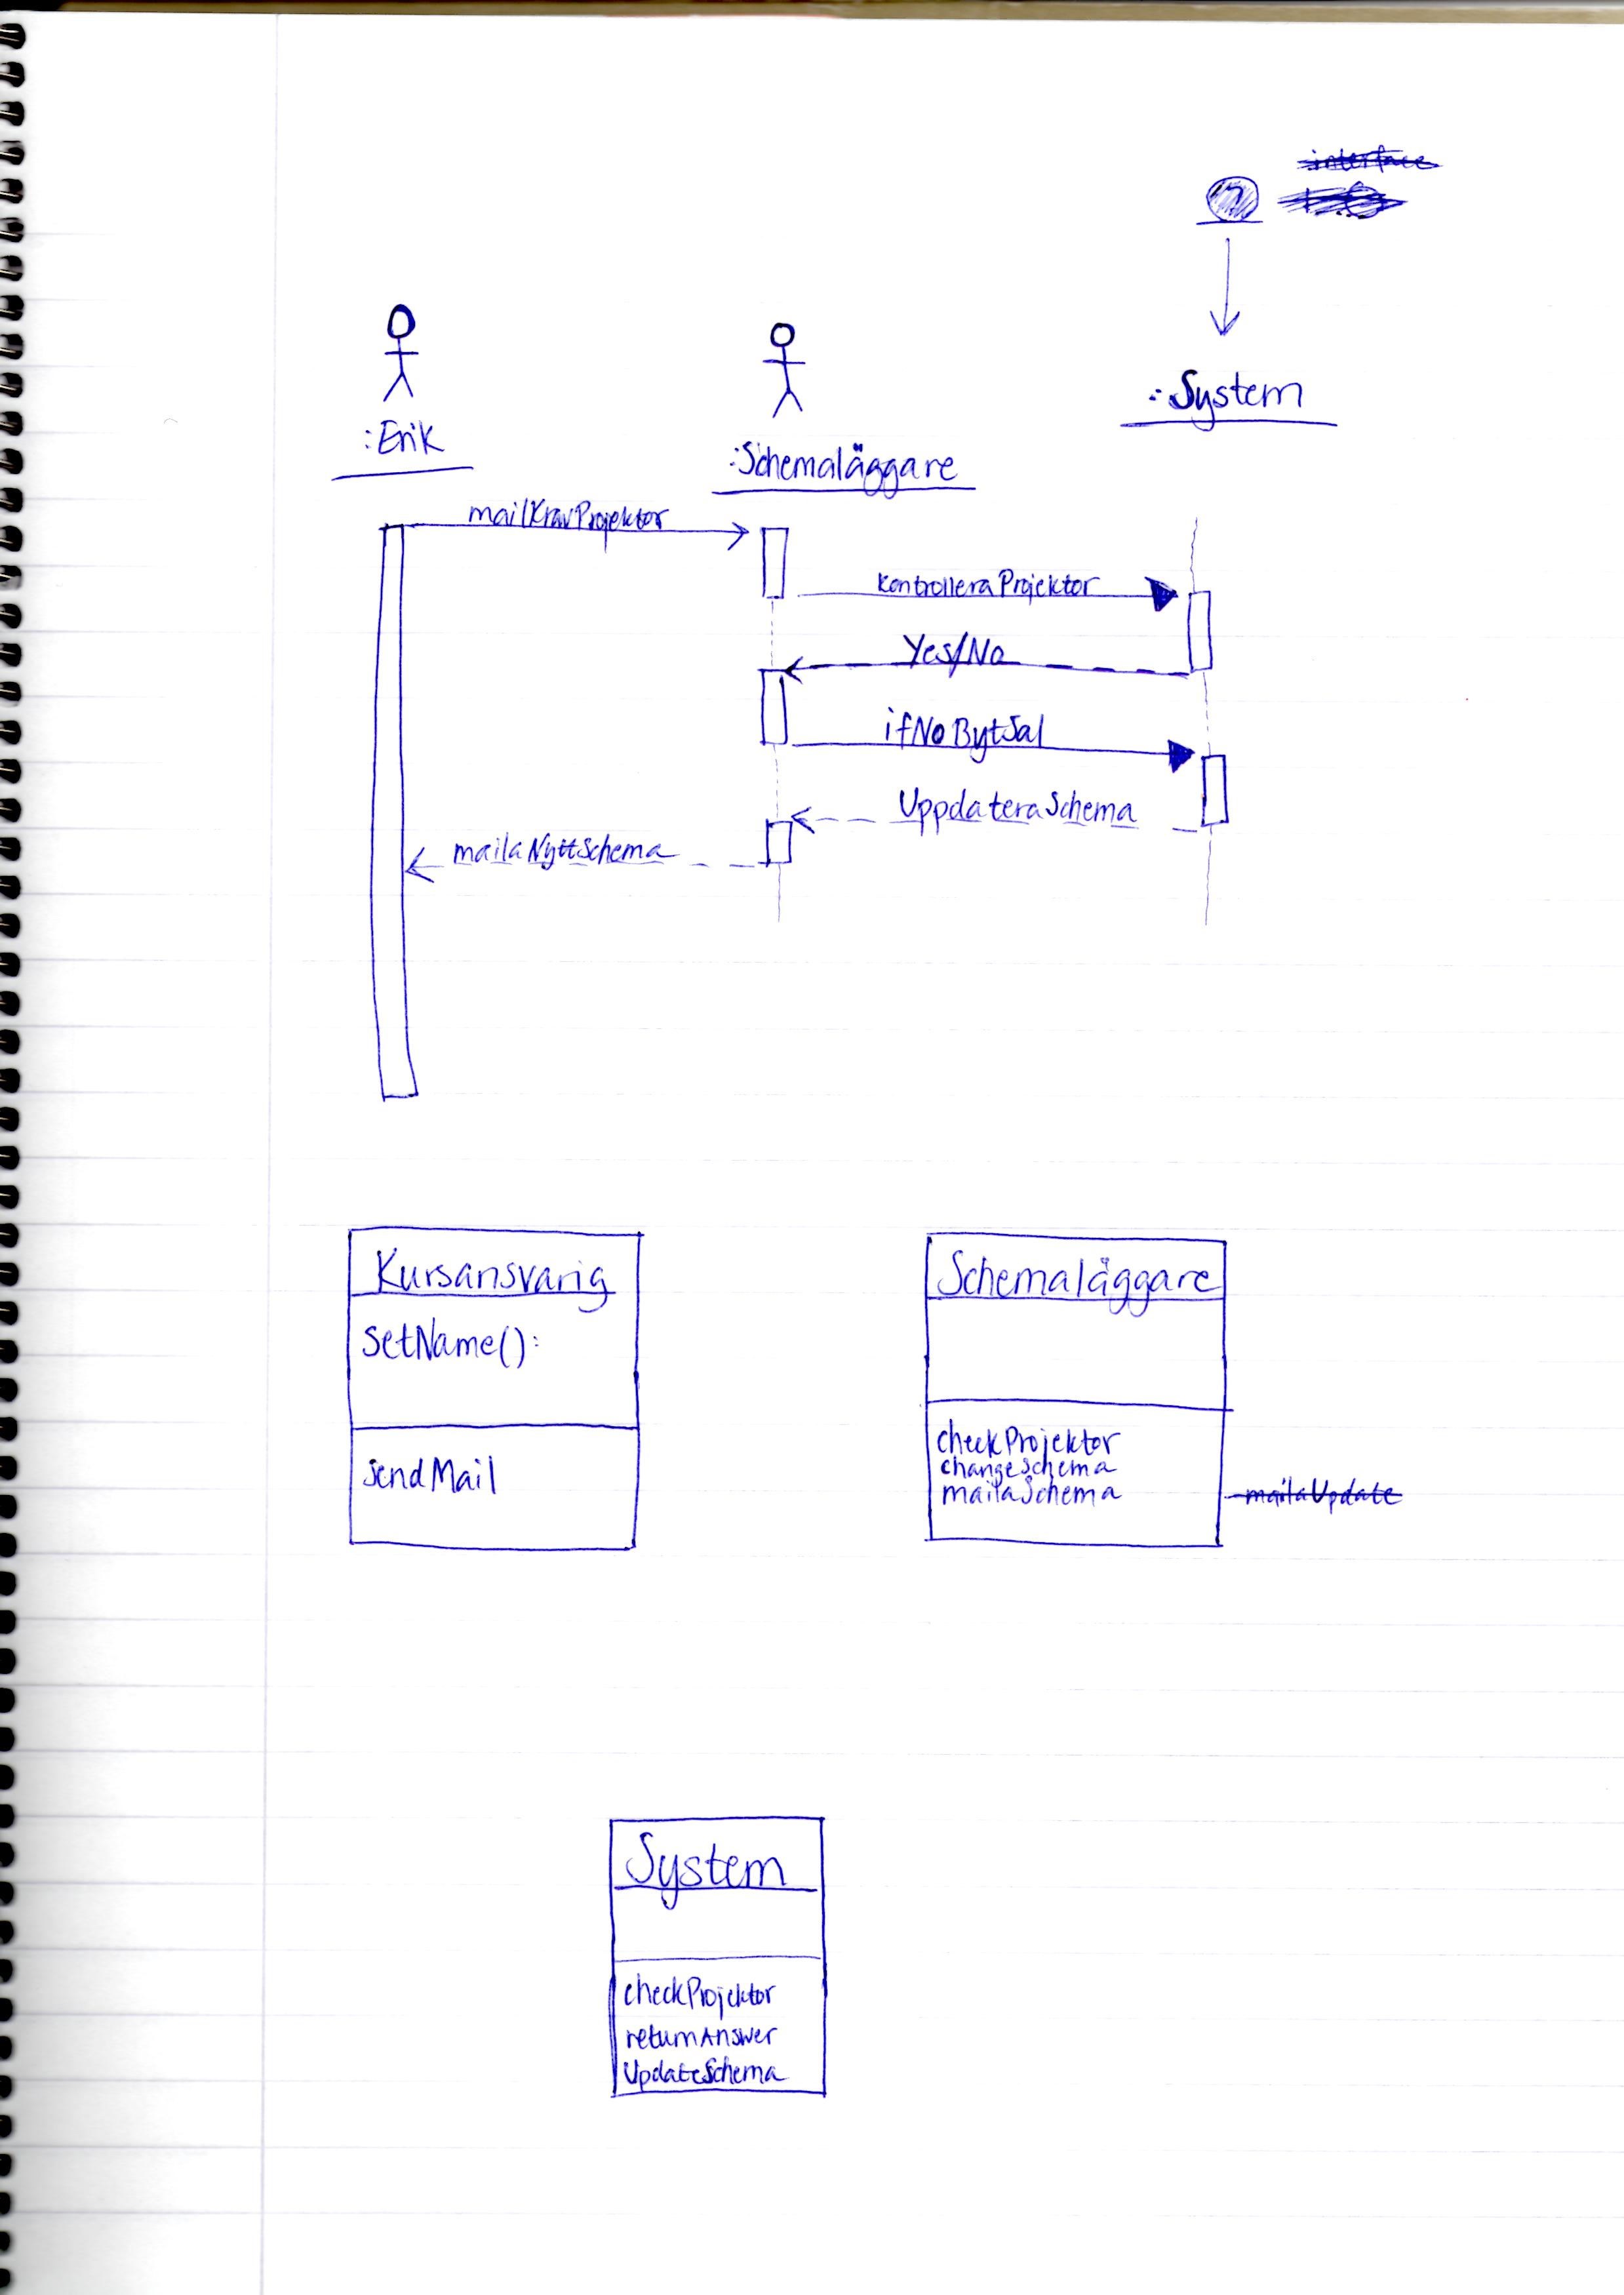 interface
:System
:Erik
:Schemaläggare
mailKravProjektor
kontrolleraProjektor
Yes/No
ifNoBytSal
UppdateraSchema
mailaNyttSchema
Kursansvarig
setName():
sendMail
Schemaläggare
checkProjektor
changeSchema
mailaSchema
mailaUpdate
System
checkProjektor
returnAnswer
UpdateSchema